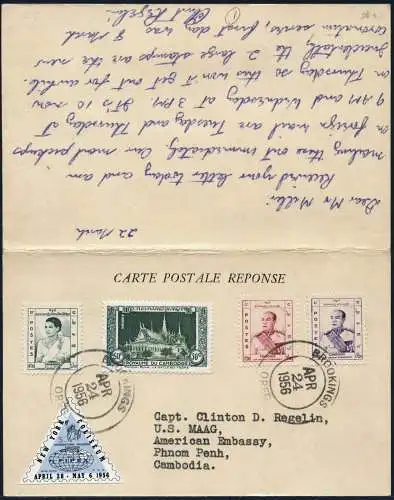 22 March
Dear Mr Miller:
Received your letter today and am
mailing these out immediately. Our mail pickups
on foreign mail are Tuesday and Thursday at
9 AM and Wednesday at 3 PM. It's 10 now
on Thursday so this won't get out for awhile.
Incidentally the 2 large stamps are the new
coronation series, first day was 8 March
Clint Regelin
CARTE POSTALE REPONSE
POSTES
ROYAUME DU CAMBODGE
POSTES
POSTES
BROOKINGS
APR
24
1956
BROOKINGS
APR
24
1956
NEW YORK COLISEUM
FIPEX
APRIL 28 - MAY 6 1956
Capt. Clinton D. Regelin,
U.S. MAAG,
American Embassy,
Phnom Penh,
Cambodia.